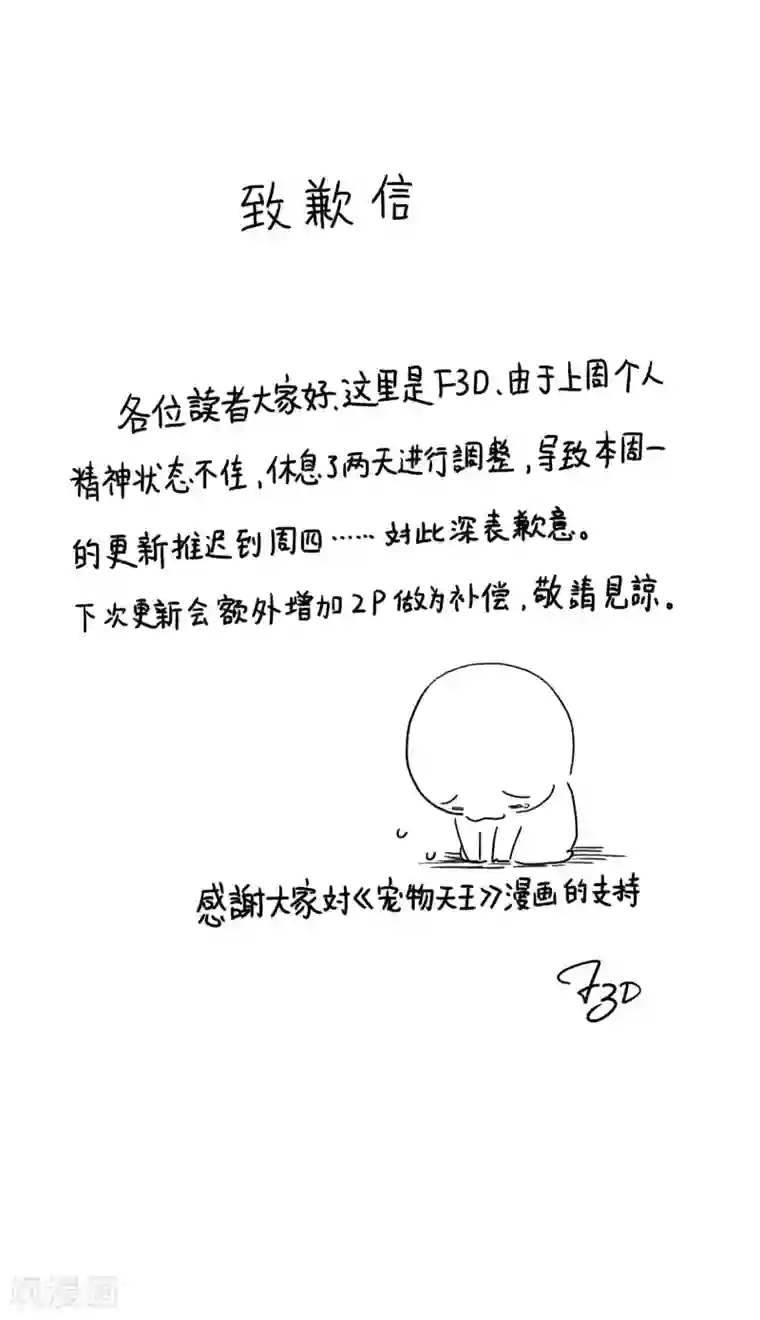 致歉信
各位読者大家好、这里是F3D、由于上周个人
精神状态不佳，休息了两天进行調整，导致本周一
的更新推迟到周四……对此深表歉意。
下次更新会额外增加2P做为补偿，敬請見諒。
感謝大家对《宠物天王》漫画的支持
F3D
漫画